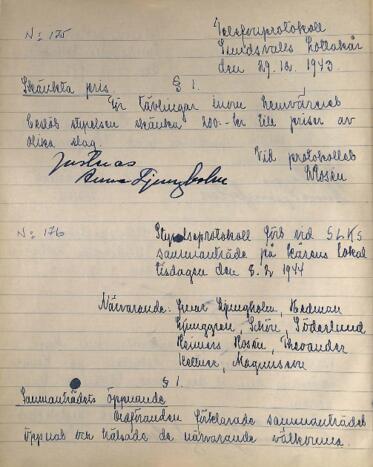 N: 175
Telefonprotokoll
Sundsvalls Lottakår
den 29.12. 1943.
Skänkta pris. § 1.
För tävlingar inom hemvärnet
beslöt styrelsen skänka 200:- kr till priser av
olika slag.
Justeras
Anna Ljungholm
Vid protokollet
N: 176
Styrelseprotokoll förb vid SLKS
sammanträde på kårens lokal
tisdagen den 8.2 1944
Närvarande: Ljungholm, Hedman
Ljunggren, Schöre, Söderlund
Reimers Thevander
Magnusson
§ 1.
Sammanträdets öppnande
Ordföranden förklarade sammanträdet
öppnat och hälsade de närvarande välkomna.